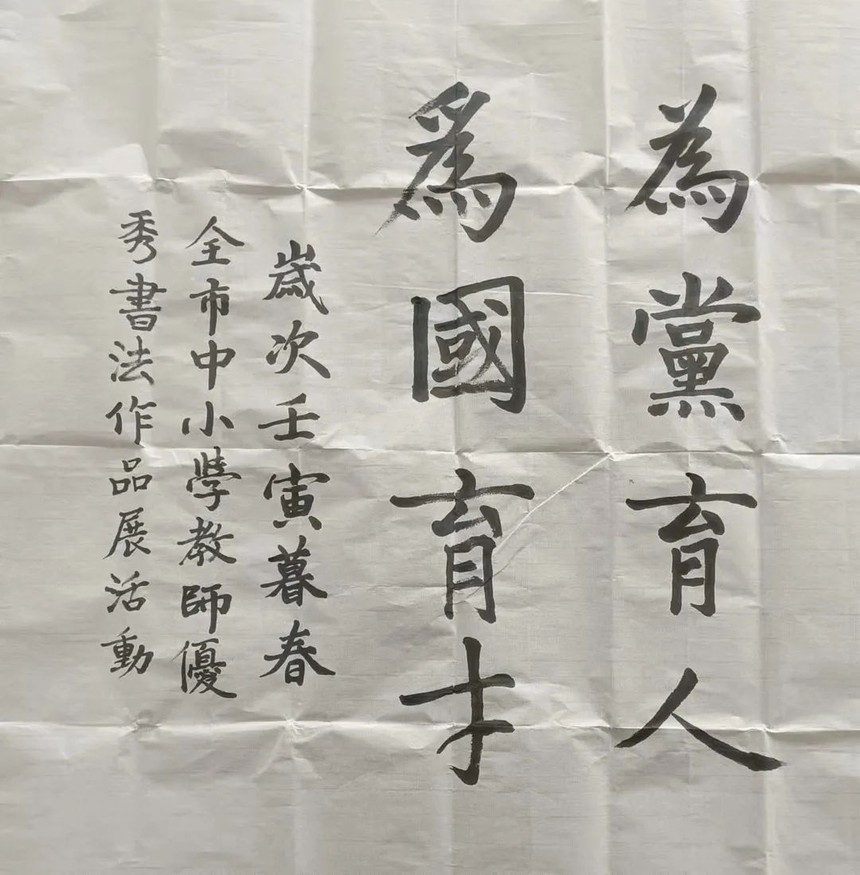 為黨育人
爲國育才
歲次壬寅暮春
全市中小學教師優
秀書法作品展活動